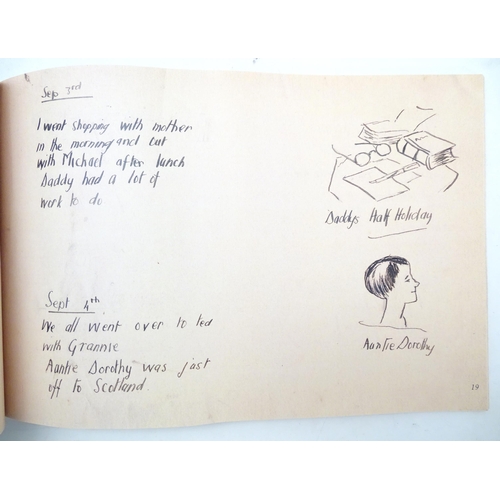 Sep 3rd
I went shopping with mother
in the morning and out
with Michael after lunch
Daddy had a lot of
work to do
Daddys Half Holiday
Sept 4th
We all went over to tea
with Grannie
Auntie Dorothy was just
off to Scotland.
Auntie Dorothy
19